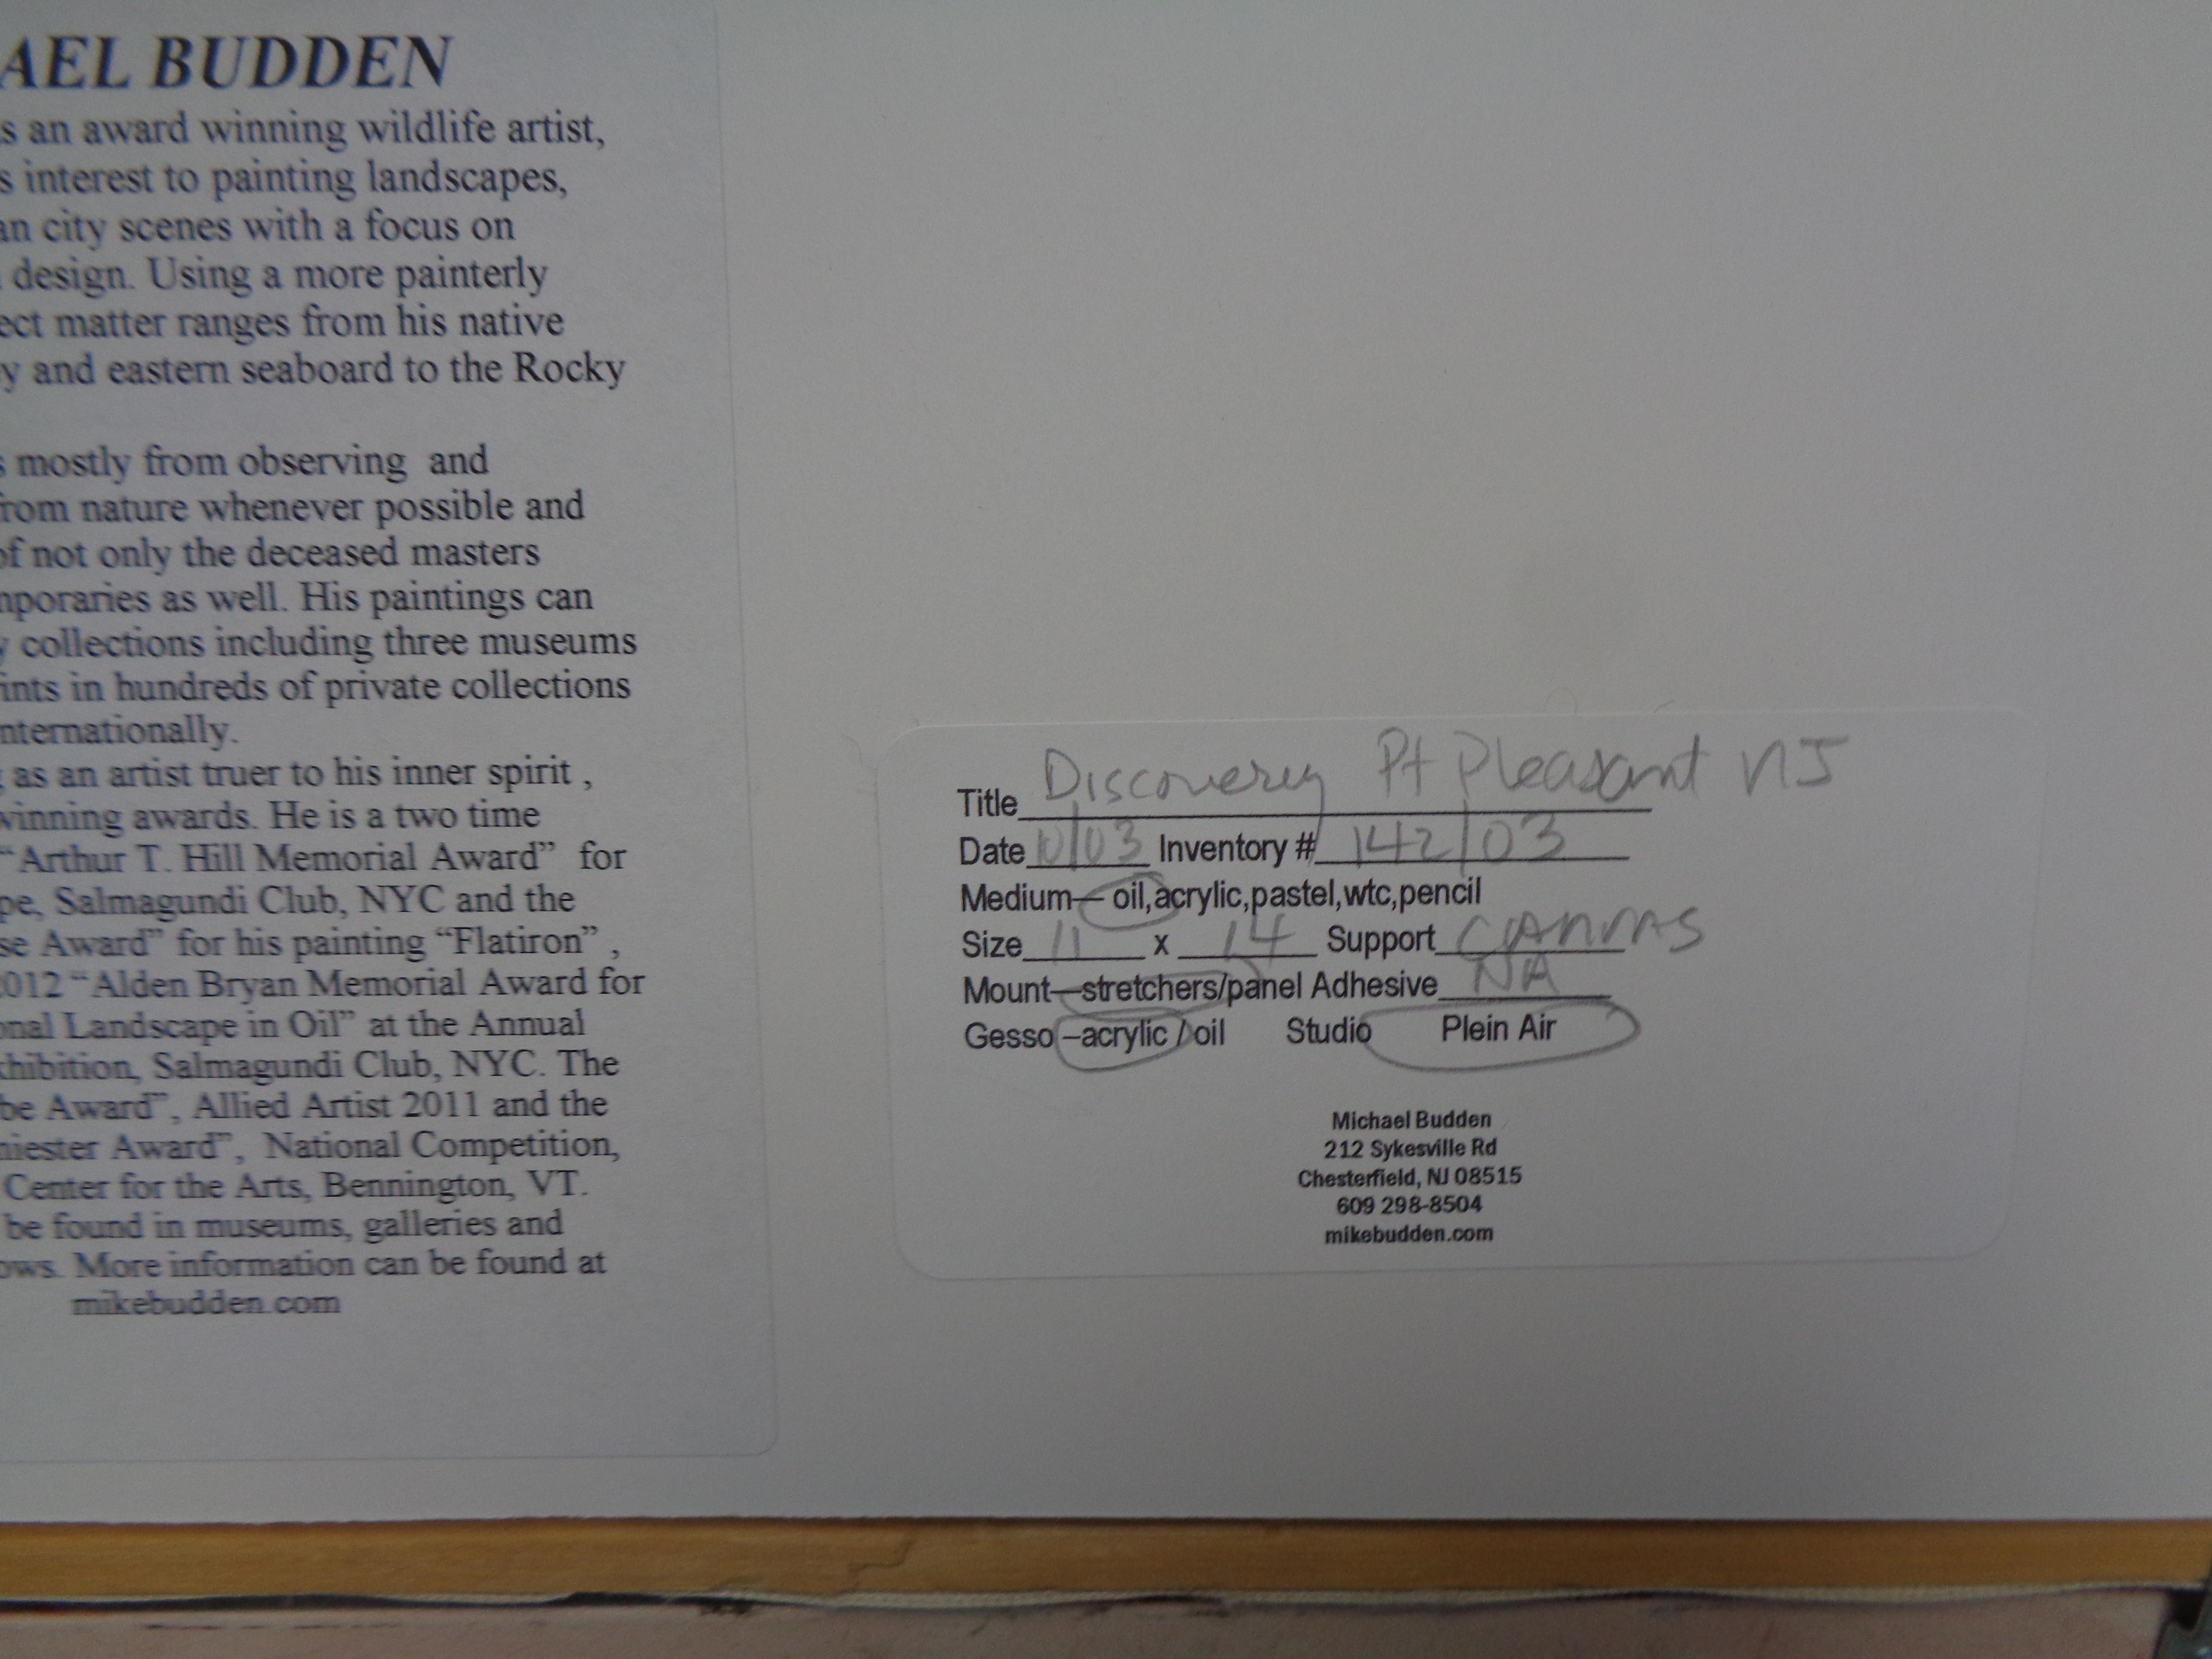 AEL BUDDEN
s an award winning wildlife artist,
s interest to painting landscapes,
an city scenes with a focus on
design. Using a more painterly
ect matter ranges from his native
y and eastern seaboard to the Rocky
s mostly from observing and
from nature whenever possible and
of not only the deceased masters
mporaries as well. His paintings can
y collections including three museums
ints in hundreds of private collections
nternationally.
g as an artist truer to his inner spirit ,
winning awards. He is a two time
"Arthur T. Hill Memorial Award" for
pe, Salmagundi Club, NYC and the
se Award" for his painting "Flatiron" ,
2012 "Alden Bryan Memorial Award for
onal Landscape in Oil" at the Annual
xhibition, Salmagundi Club, NYC. The
be Award", Allied Artist 2011 and the
hiester Award", National Competition,
Center for the Arts, Bennington, VT.
be found in museums, galleries and
ows. More information can be found at
mikebudden.com
Title Discovery Pt Pleasant NJ
Date 10/03 Inventory # 142/03
Medium— oil,acrylic,pastel,wtc,pencil
Size 11 x 14 Support CANVAS
Mount—stretchers/panel Adhesive NA
Gesso –acrylic / oil Studio Plein Air
Michael Budden
212 Sykesville Rd
Chesterfield, NJ 08515
609 298-8504
mikebudden.com